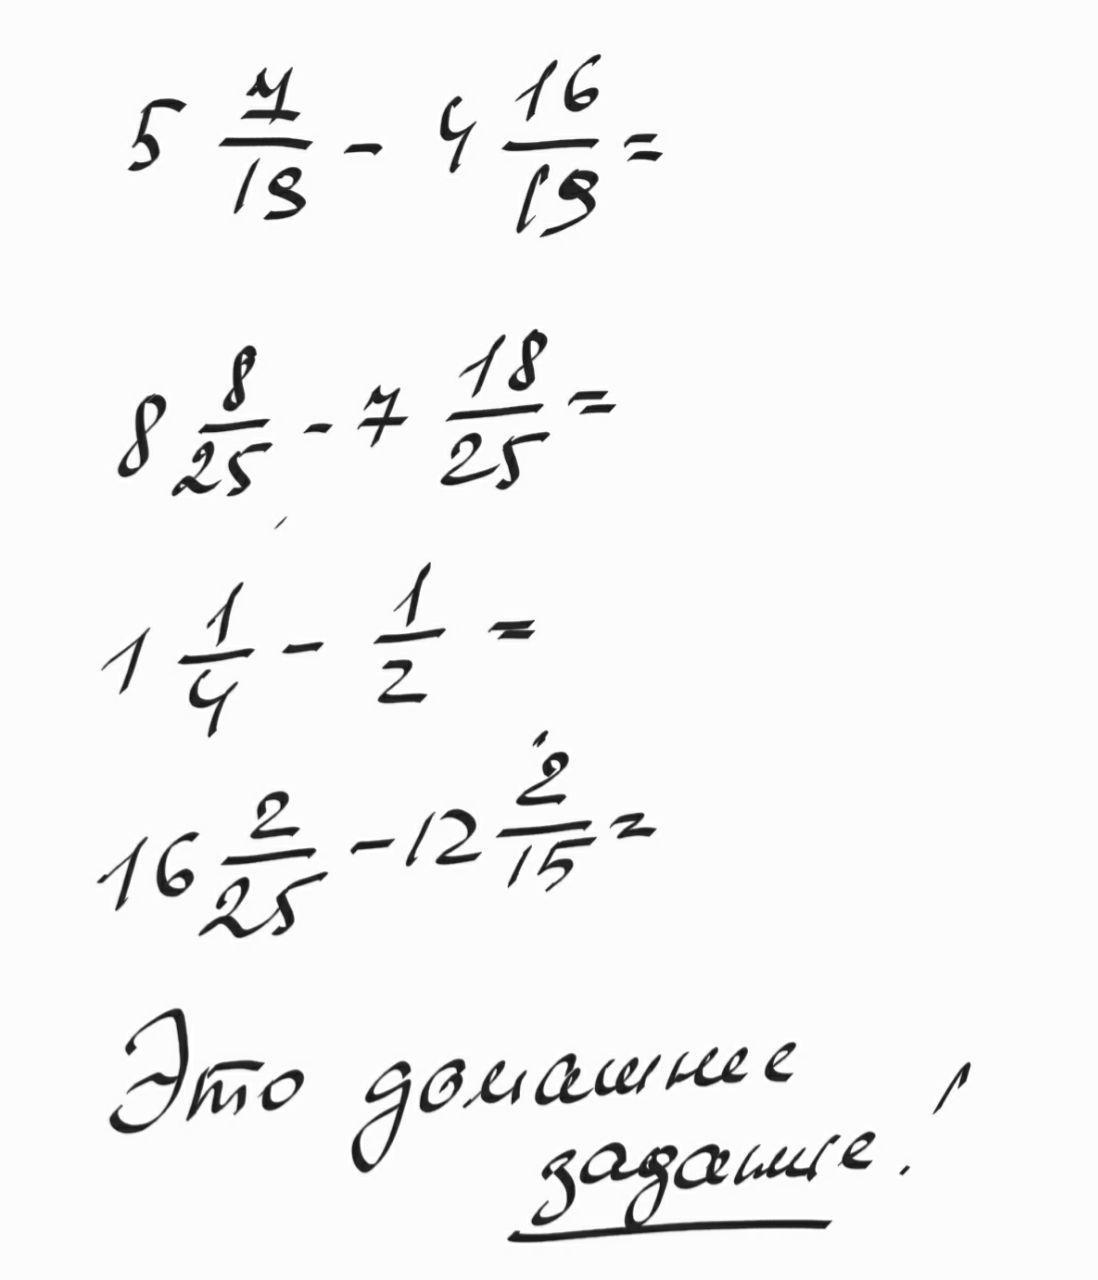 5 7/19 - 4 16/19 =
8 8/25 - 7 18/25 =
1 1/4 - 1/2 =
16 2/25 - 12 2/15 =
Это домашнее
задание!